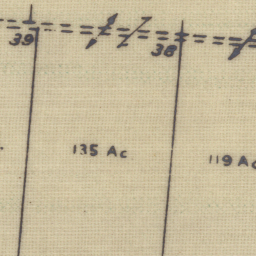 39
38
135 Ac
119 Ac